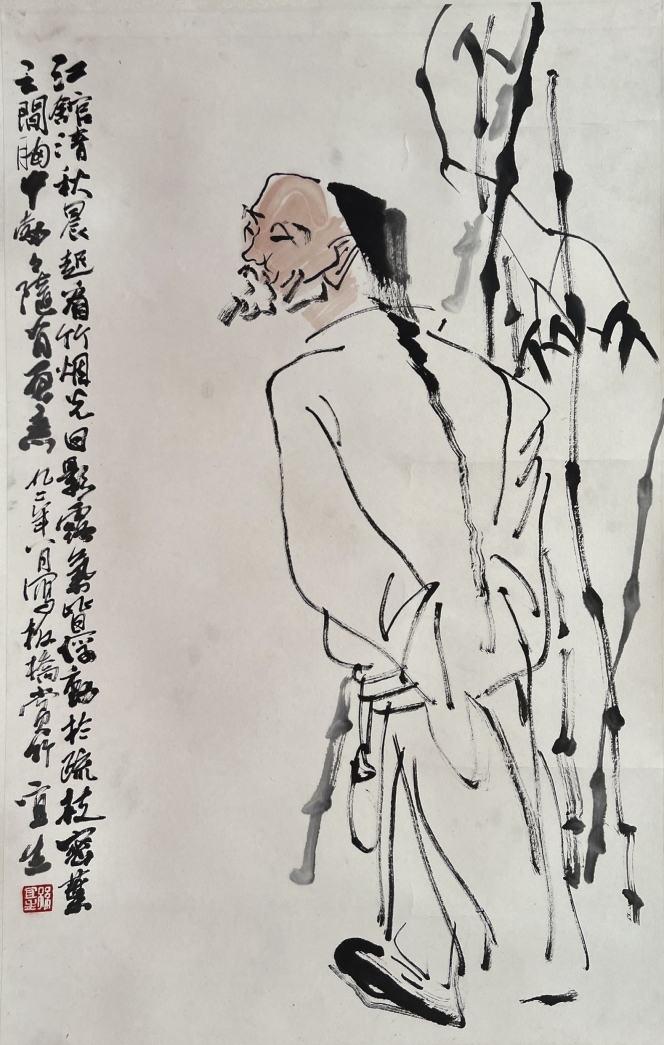 江舘清秋晨起看竹烟光日影露氣皆浮動於疏枝密葉
之間胸中勃々隨有画意 九二年八月寫板橋賞竹 宜生